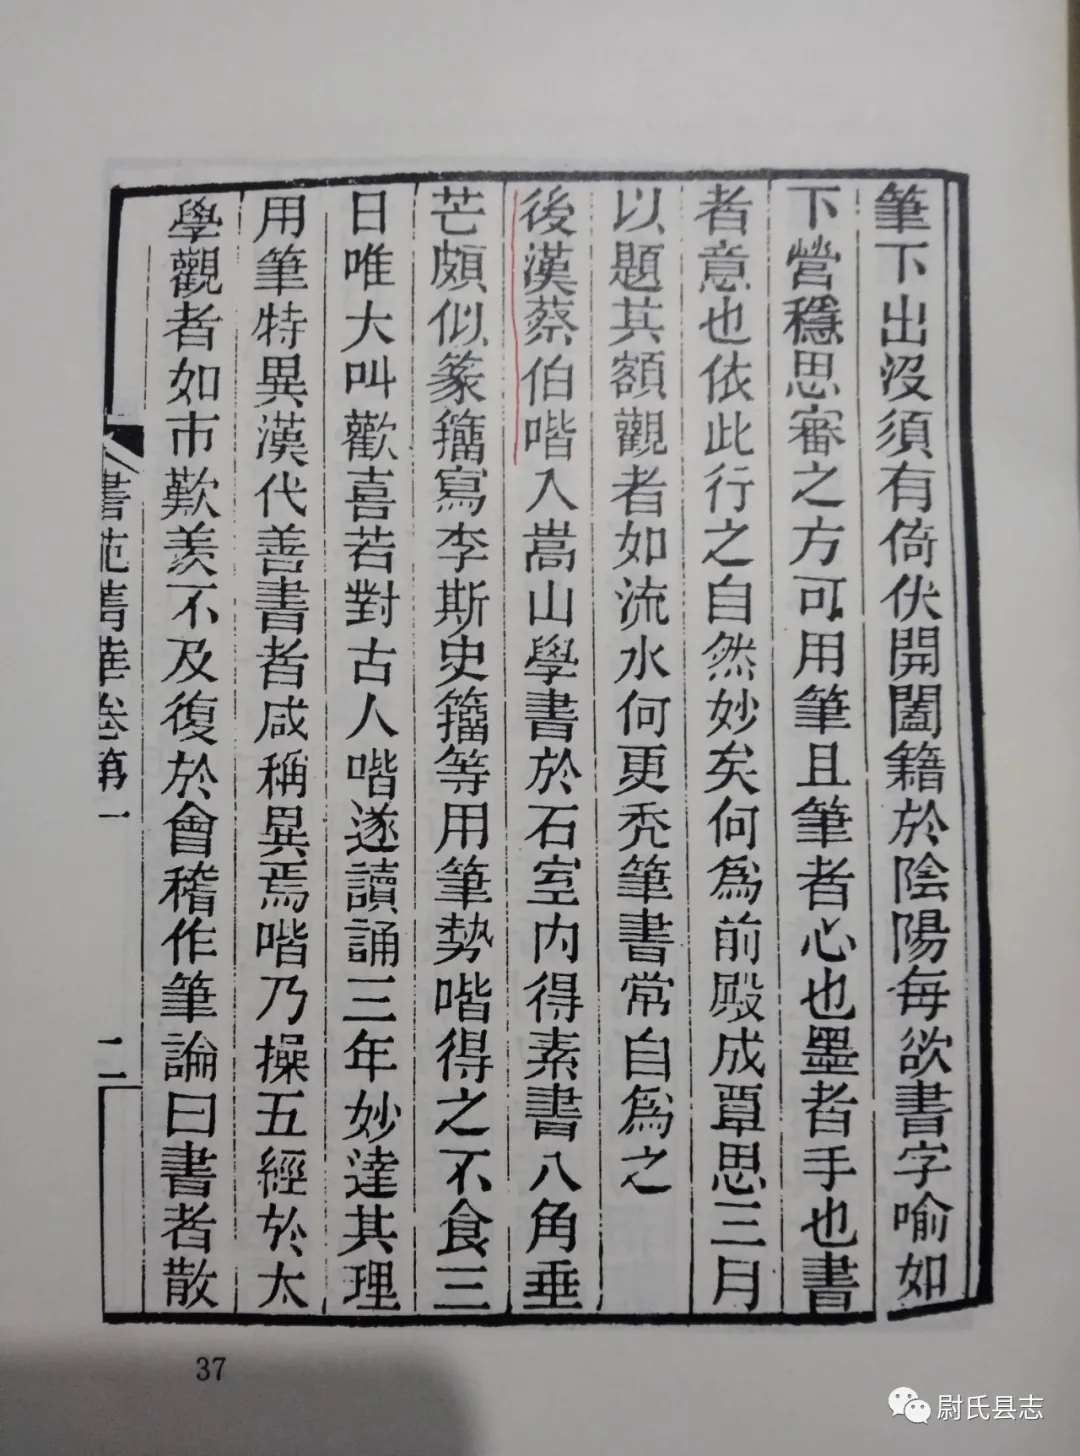 筆下出沒須有倚伏開闔籍於陰陽每欲書字喻如
下營穩思審之方可用筆且筆者心也墨者手也書
者意也依此行之自然妙矣何為前殿成覃思三月
以題其額觀者如流水何更禿筆書常自為之
後漢蔡伯喈入嵩山學書於石室內得素書八角垂
芒頗似篆籀寫李斯史籀等用筆勢喈得之不食三
日唯大叫歡喜若對古人喈遂讀誦三年妙達其理
用筆特異漢代善書者咸稱異焉喈乃操五經於太
學觀者如市歎羨不及復於會稽作筆論曰書者散
書苑菁華卷第一
二
37
尉氏县志